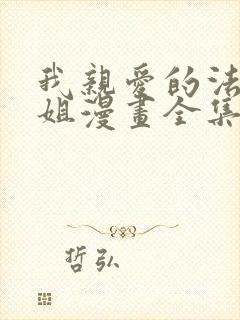 我親愛的法
姐漫畫全集
哲弘